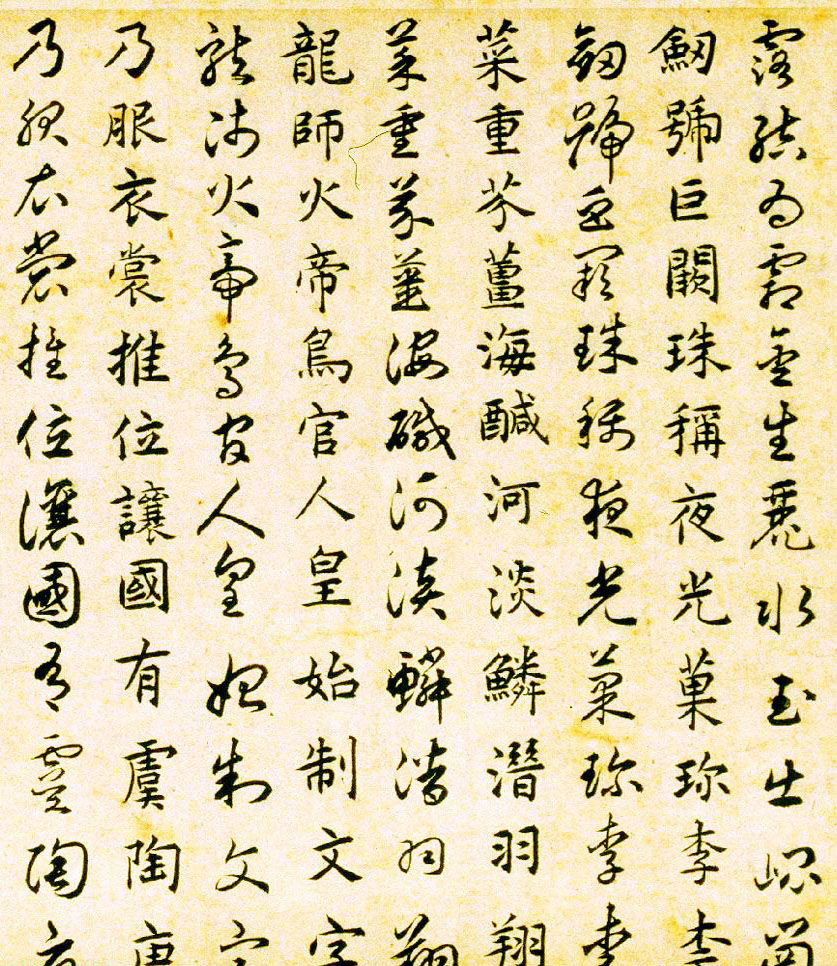 露結為霜金生麗水玉出崐崗
劒號巨闕珠稱夜光菓珎李柰
劒號巨闕珠稱夜光菓珎李柰
菜重芥薑海醎河淡鱗潛羽翔
菜重芥薑海醎河淡鱗潛羽翔
龍師火帝鳥官人皇始制文字
龍師火帝鳥官人皇始制文字
乃服衣裳推位讓國有虞陶唐
乃服衣裳推位讓國有虞陶唐